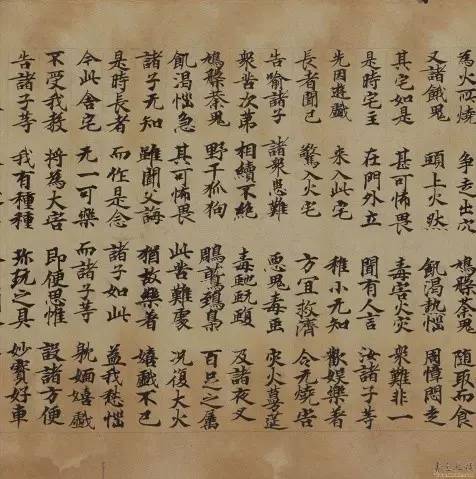 為火所燒　爭走出穴　鳩槃荼鬼　隨取而食
又諸餓鬼　頭上火然　飢渴熱惱　周慞悶走
其宅如是　甚可怖畏　毒害火灾　衆難非一
是時宅主　在門外立　聞有人言　汝諸子等
先因遊戲　來入此宅　稚小无知　歡娛樂著
長者聞已　驚入火宅　方宜救濟　令无燒害
告喻諸子　說衆患難　惡鬼毒虫　灾火蔓莚
衆苦次第　相續不絕　毒虵蚖蝮　及諸夜叉
鳩槃荼鬼　野干狐狗　鵰鷲鵄梟　百足之屬
飢渴惱急　甚可怖畏　此苦難處　况復大火
諸子无知　雖聞父誨　猶故樂著　嬉戲不已
是時長者　而作是念　諸子如此　益我愁惱
今此舍宅　无一可樂　而諸子等　躭湎嬉戲
不受我教　將為火害　即便思惟　設諸方便
告諸子等　我有種種　珎玩之具　妙寶好車